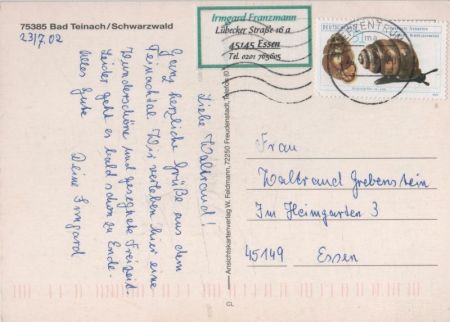 75385 Bad Teinach/Schwarzwald
23/7.02
Liebe Waltraud!
Ganz herzliche Grüße aus dem
Teinachtal. Wir verleben hier eine
wunderschöne und gesegnete Freizeit.
Leider geht es bald schon zu Ende.
Alles Gute
Deine Irmgard
Ansichtskartenverlag W. Feldmann, 72250 Freudenstadt,
CL
Irmgard Franzmann
Lübecker Straße 16 a
45145 Essen
Tel. 0201 765605
Frau
Waltraud Grebenstein
Im Heimgarten 3
45149 Essen